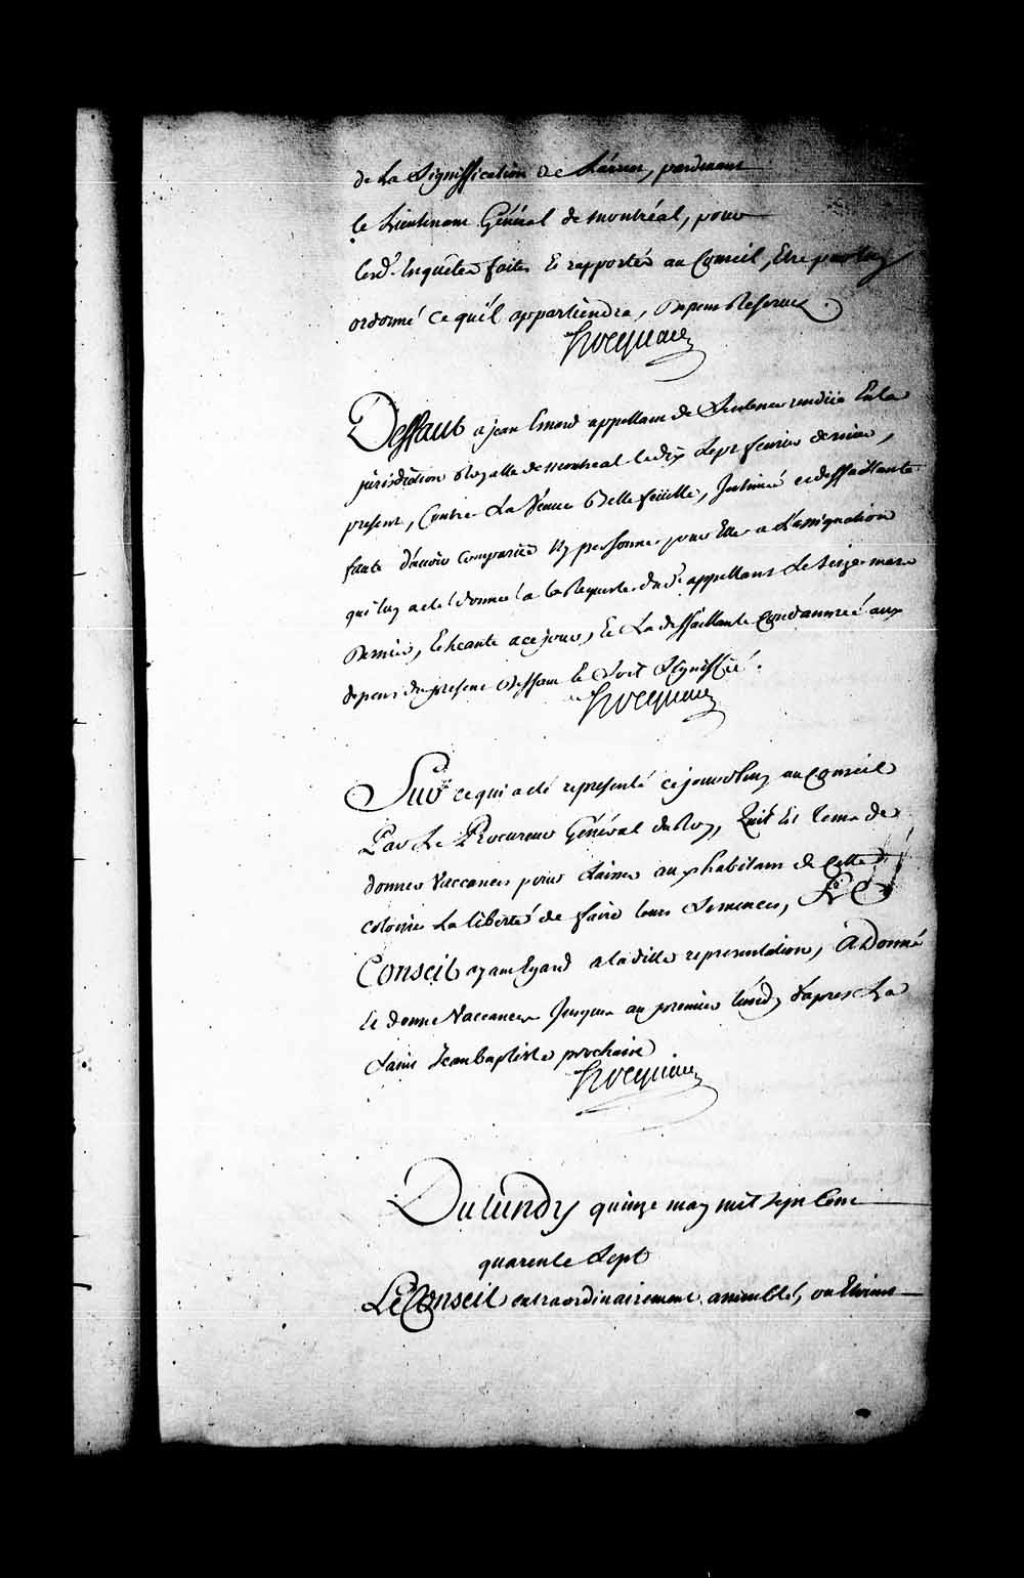 de La Signiffication de L'arrest, pardevant
le Lieutenant Général de montréal, pour
lesd. Enquêtes faites Et rapportés au Conseil, Etre par luy
ordonné ce qu'il appartiendra, Depens Reservez.
Hocquart
Deffaut a jean Emard appellant de Sentence rendüe En la
jurisdiction Royalle de montreal le dix Sept fevrier dernier,
present, Contre La Veuve Bellefeüille, Intimée et deffaillante
faute d'avoir Comparue ny personne pour Elle a L'assignation
qui luy a eté donnée a la Requeste dud. appellant Le Seize mars
Dernier, Echeante a ce jour, Et La deffaillante Condamnée aux
depens du present Deffaut Et Soit Signiffié.
Hocquart
Sur ce qui a eté representé ce jourd'huy au Conseil
Par Le Procureur Général du Roy, Qu'il Est tems de
donner Vaccances pour Laisser aux habitans de Cette
colonie La liberté de faire leurs Semences, Le
Conseil ayant Egard a la ditte representation, a Donné
Et donne Vaccances Jusqu'au premier lundy d'apres La
Saint Jean baptiste prochaine
Hocquart
Du Lundy quinze may mil sept Cent
quarente Sept
Le Conseil extraordinairement assemblé, ou Etoient